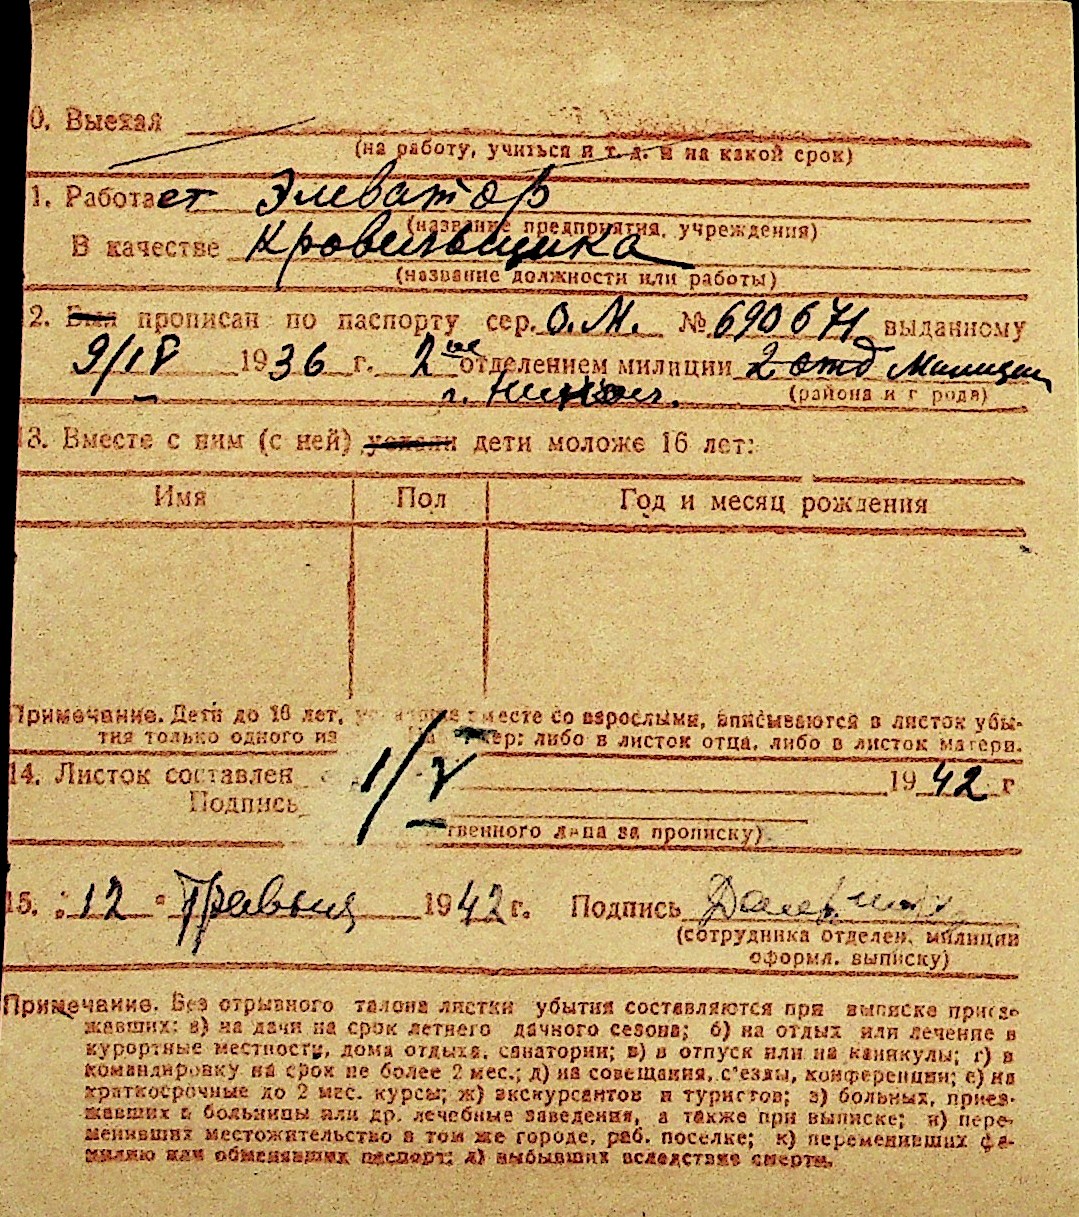 0. Выехал
(на работу, учиться и т. д. и на какой срок)
1. Работает Элеватор
(название предприятия, учреждения)
В качестве Кровельщика
(название должности или работы)
2. Был прописан по паспорту сер. О.М. № 690671 выданному
9/18 1936 г. 2ое отделением милиции 2 отд Милиции
г.
(района и г рода)
13. Вместе с ним (с ней) уехали дети моложе 16 лет:
Имя Пол Год и месяц рождения
Примечание. Дети до 16 лет, вместе со взрослыми, вписываются в листок убы-
тия только одного из либо в листок отца, либо в листок матери.
14. Листок составлен 1/V 1942 г
Подпись
твенного лица за прописку)
15. 12 Травня 1942 г. Подпись
(сотрудника отделен. милиции
оформл. выписку)
Примечание. Без отрывного талона листки убытия составляются при выписке приез-
жавших: а) на дачи на срок летнего дачного сезона; б) на отдых или лечение в
курортные местности, дома отдыха, санатории; в) в отпуск или на каникулы; г) в
командировку на срок не более 2 мес.; д) на совещания, с'езды, конференции; е) на
краткосрочные до 2 мес. курсы; ж) экскурсантов и туристов; з) больных, приез-
жавших в больницы или др. лечебные заведения, а также при выписке; и) пере-
менивших местожительство в том же городе, раб. поселке; к) переменивших фа-
милию или обменявших паспорт; л) выбывших вследствие смерти.